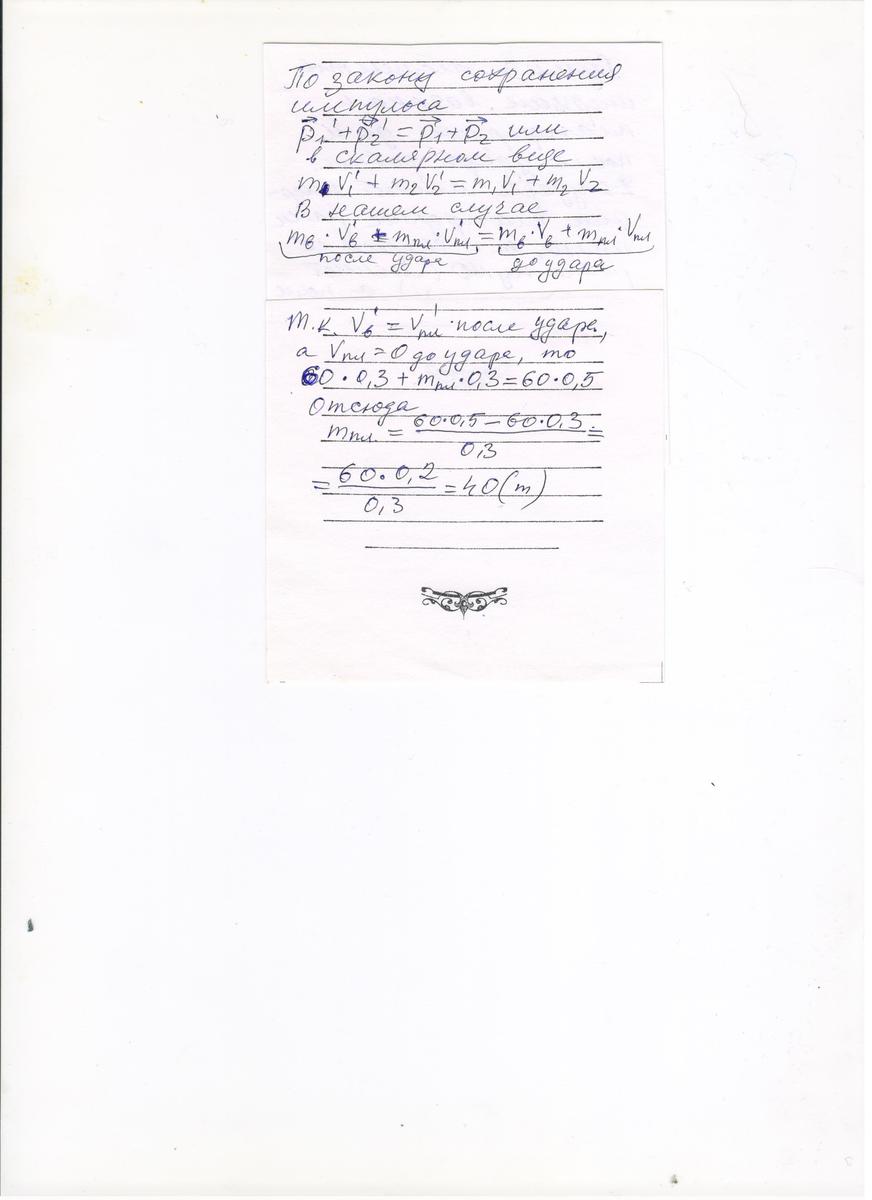 По закону сохранения
импульса
p⃗₁' + p⃗₂' = p⃗₁ + p⃗₂ или
в скалярном виде
m₁ V₁' + m₂ V₂' = m₁ V₁ + m₂ V₂
В нашем случае
mв · Vв' + mпл · Vпл' = mв · Vв + mпл · Vпл
после удара до удара
Т.к. Vв' = Vпл' после удара,
а Vпл = 0 до удара, то
60 · 0,3 + mпл · 0,3 = 60 · 0,5
Отсюда
mпл. = (60·0,5 – 60·0,3) / 0,3 =
= (60 · 0,2) / 0,3 = 40 (т)